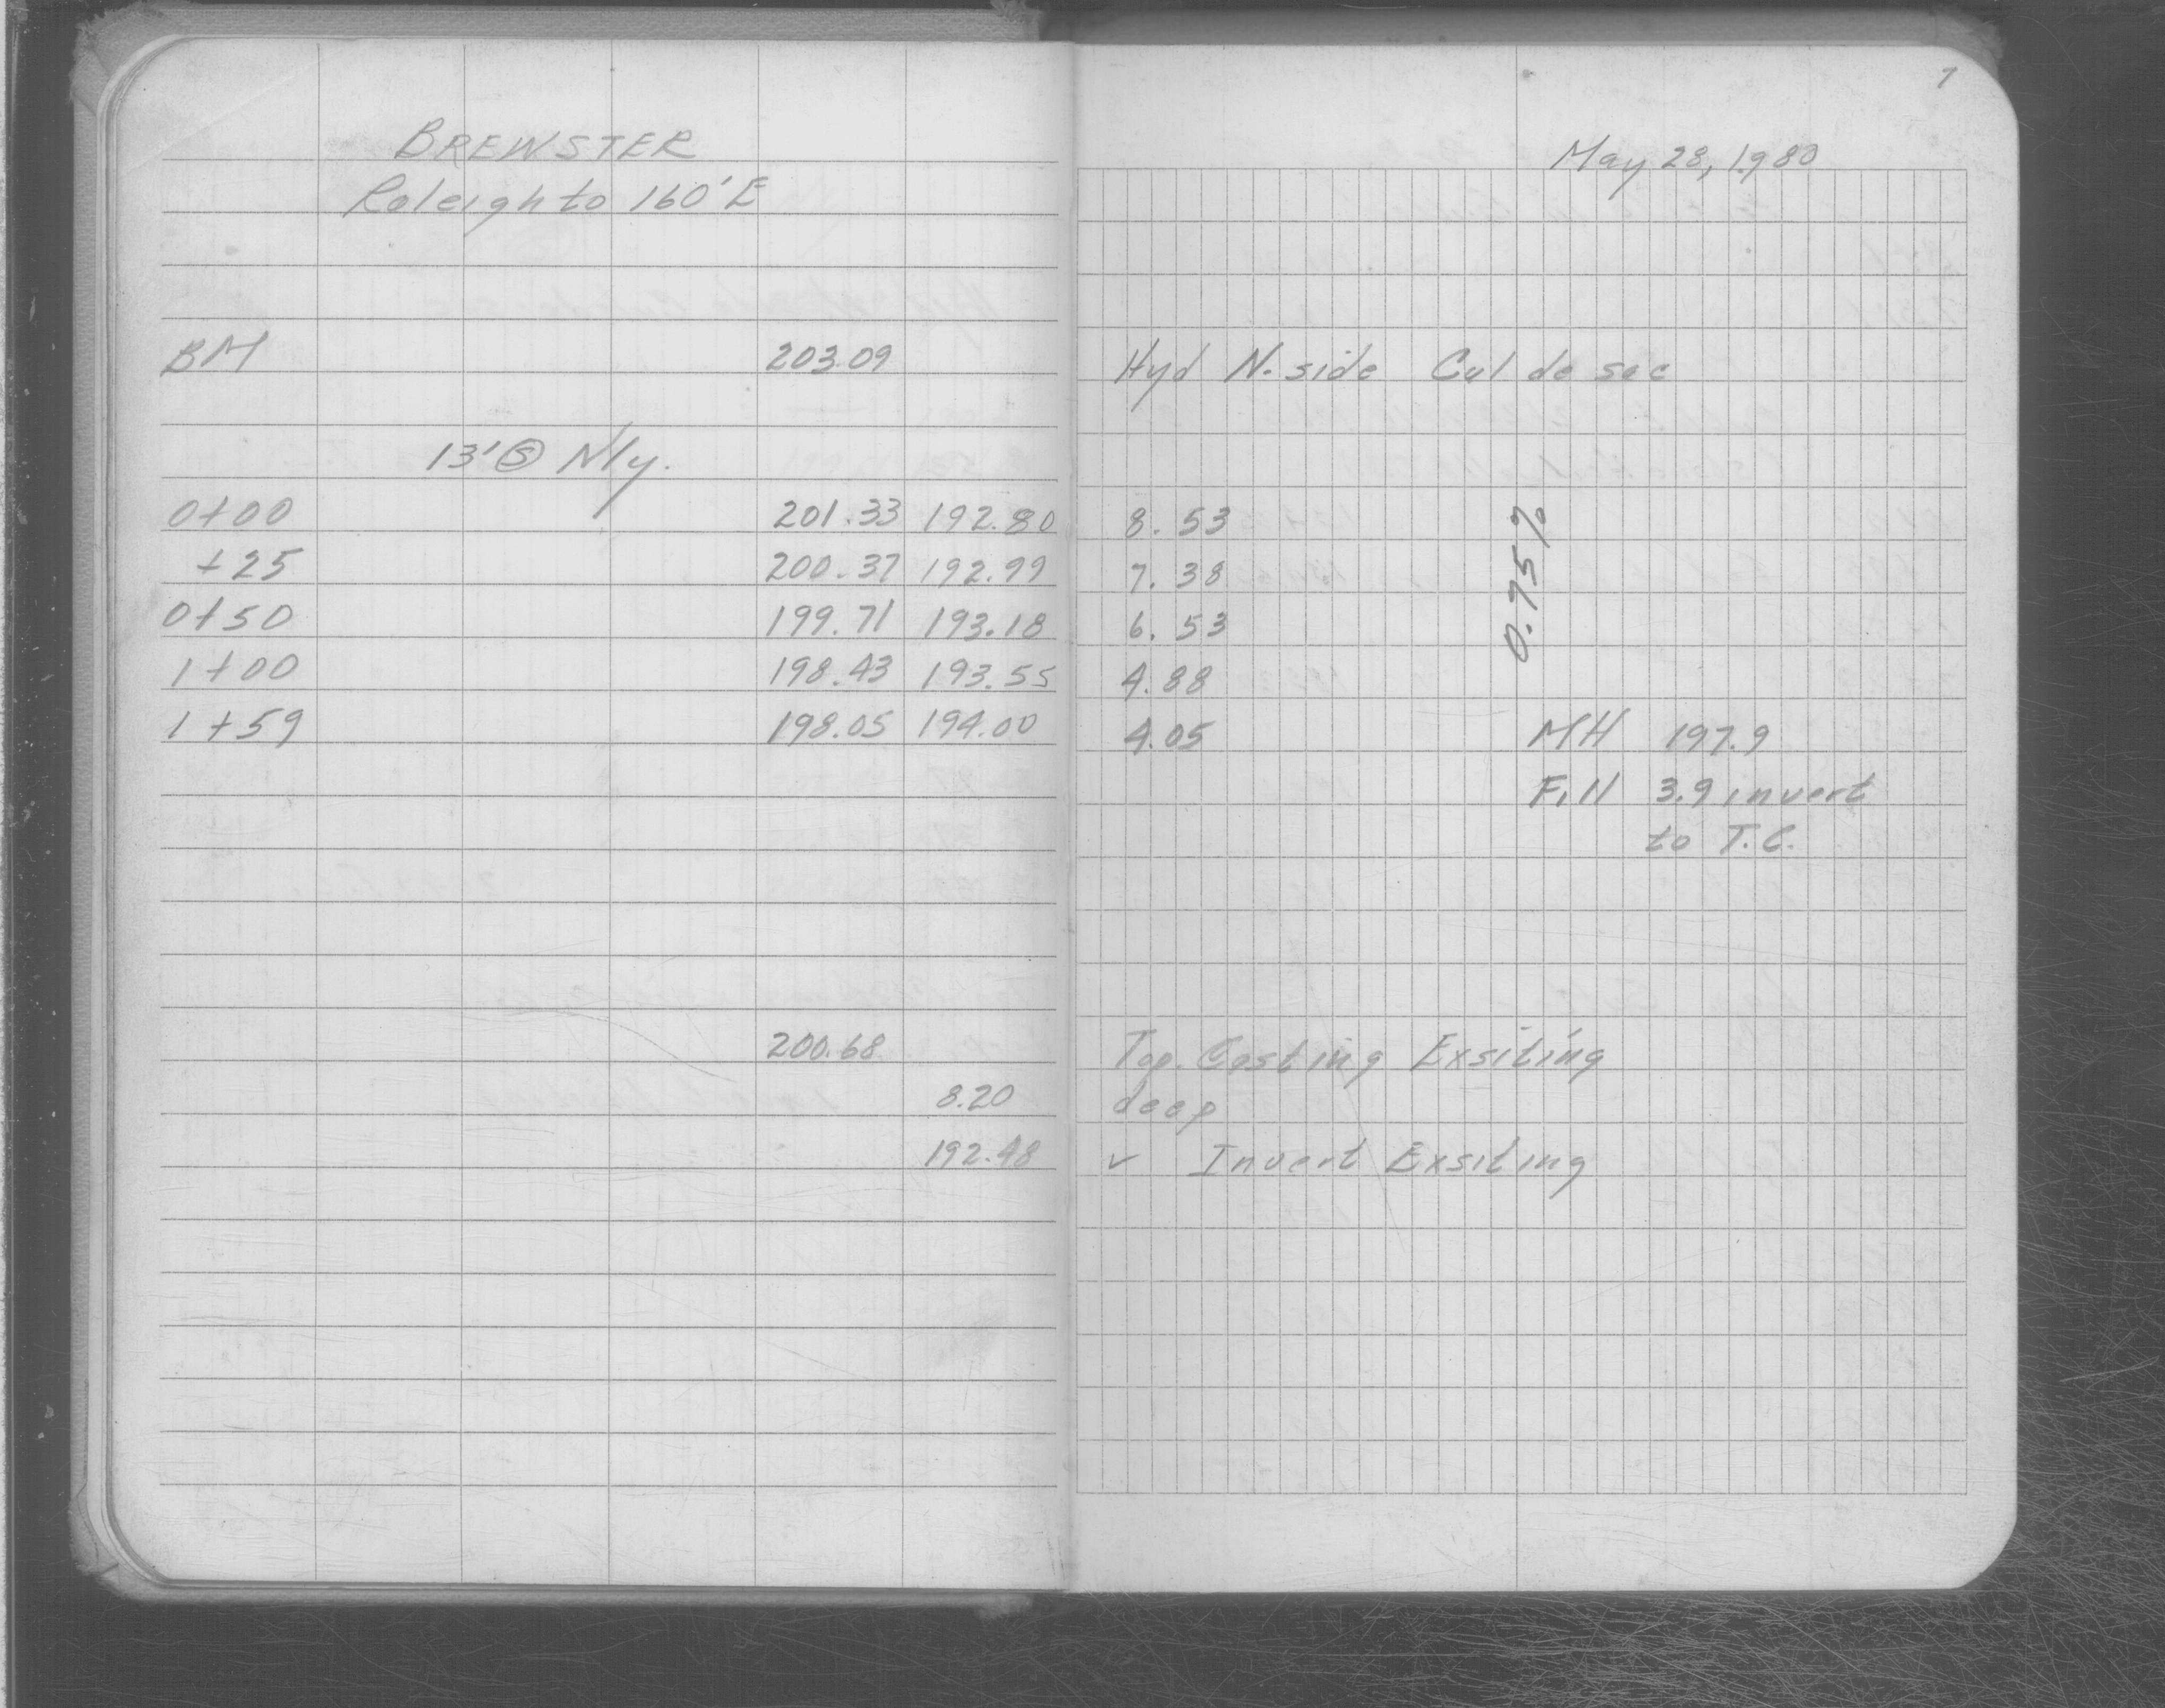 7
BREWSTER
May 28, 1980
Raleigh to 160' E
BM 203.09 Hyd N. side Cul de sac
13' Ⓢ Nly.
0+00 201.33 192.80 8.53
+25 200.37 192.99 7.38
0+50 199.71 193.18 6.53
0.75%
1+00 198.43 193.55 4.88
1+59 198.05 194.00 4.05 MH 197.9
Fill 3.9 invert
to T.C.
200.68 Top. Casting Exsiting
8.20 deep
192.48 ✓ Invert Exsiting